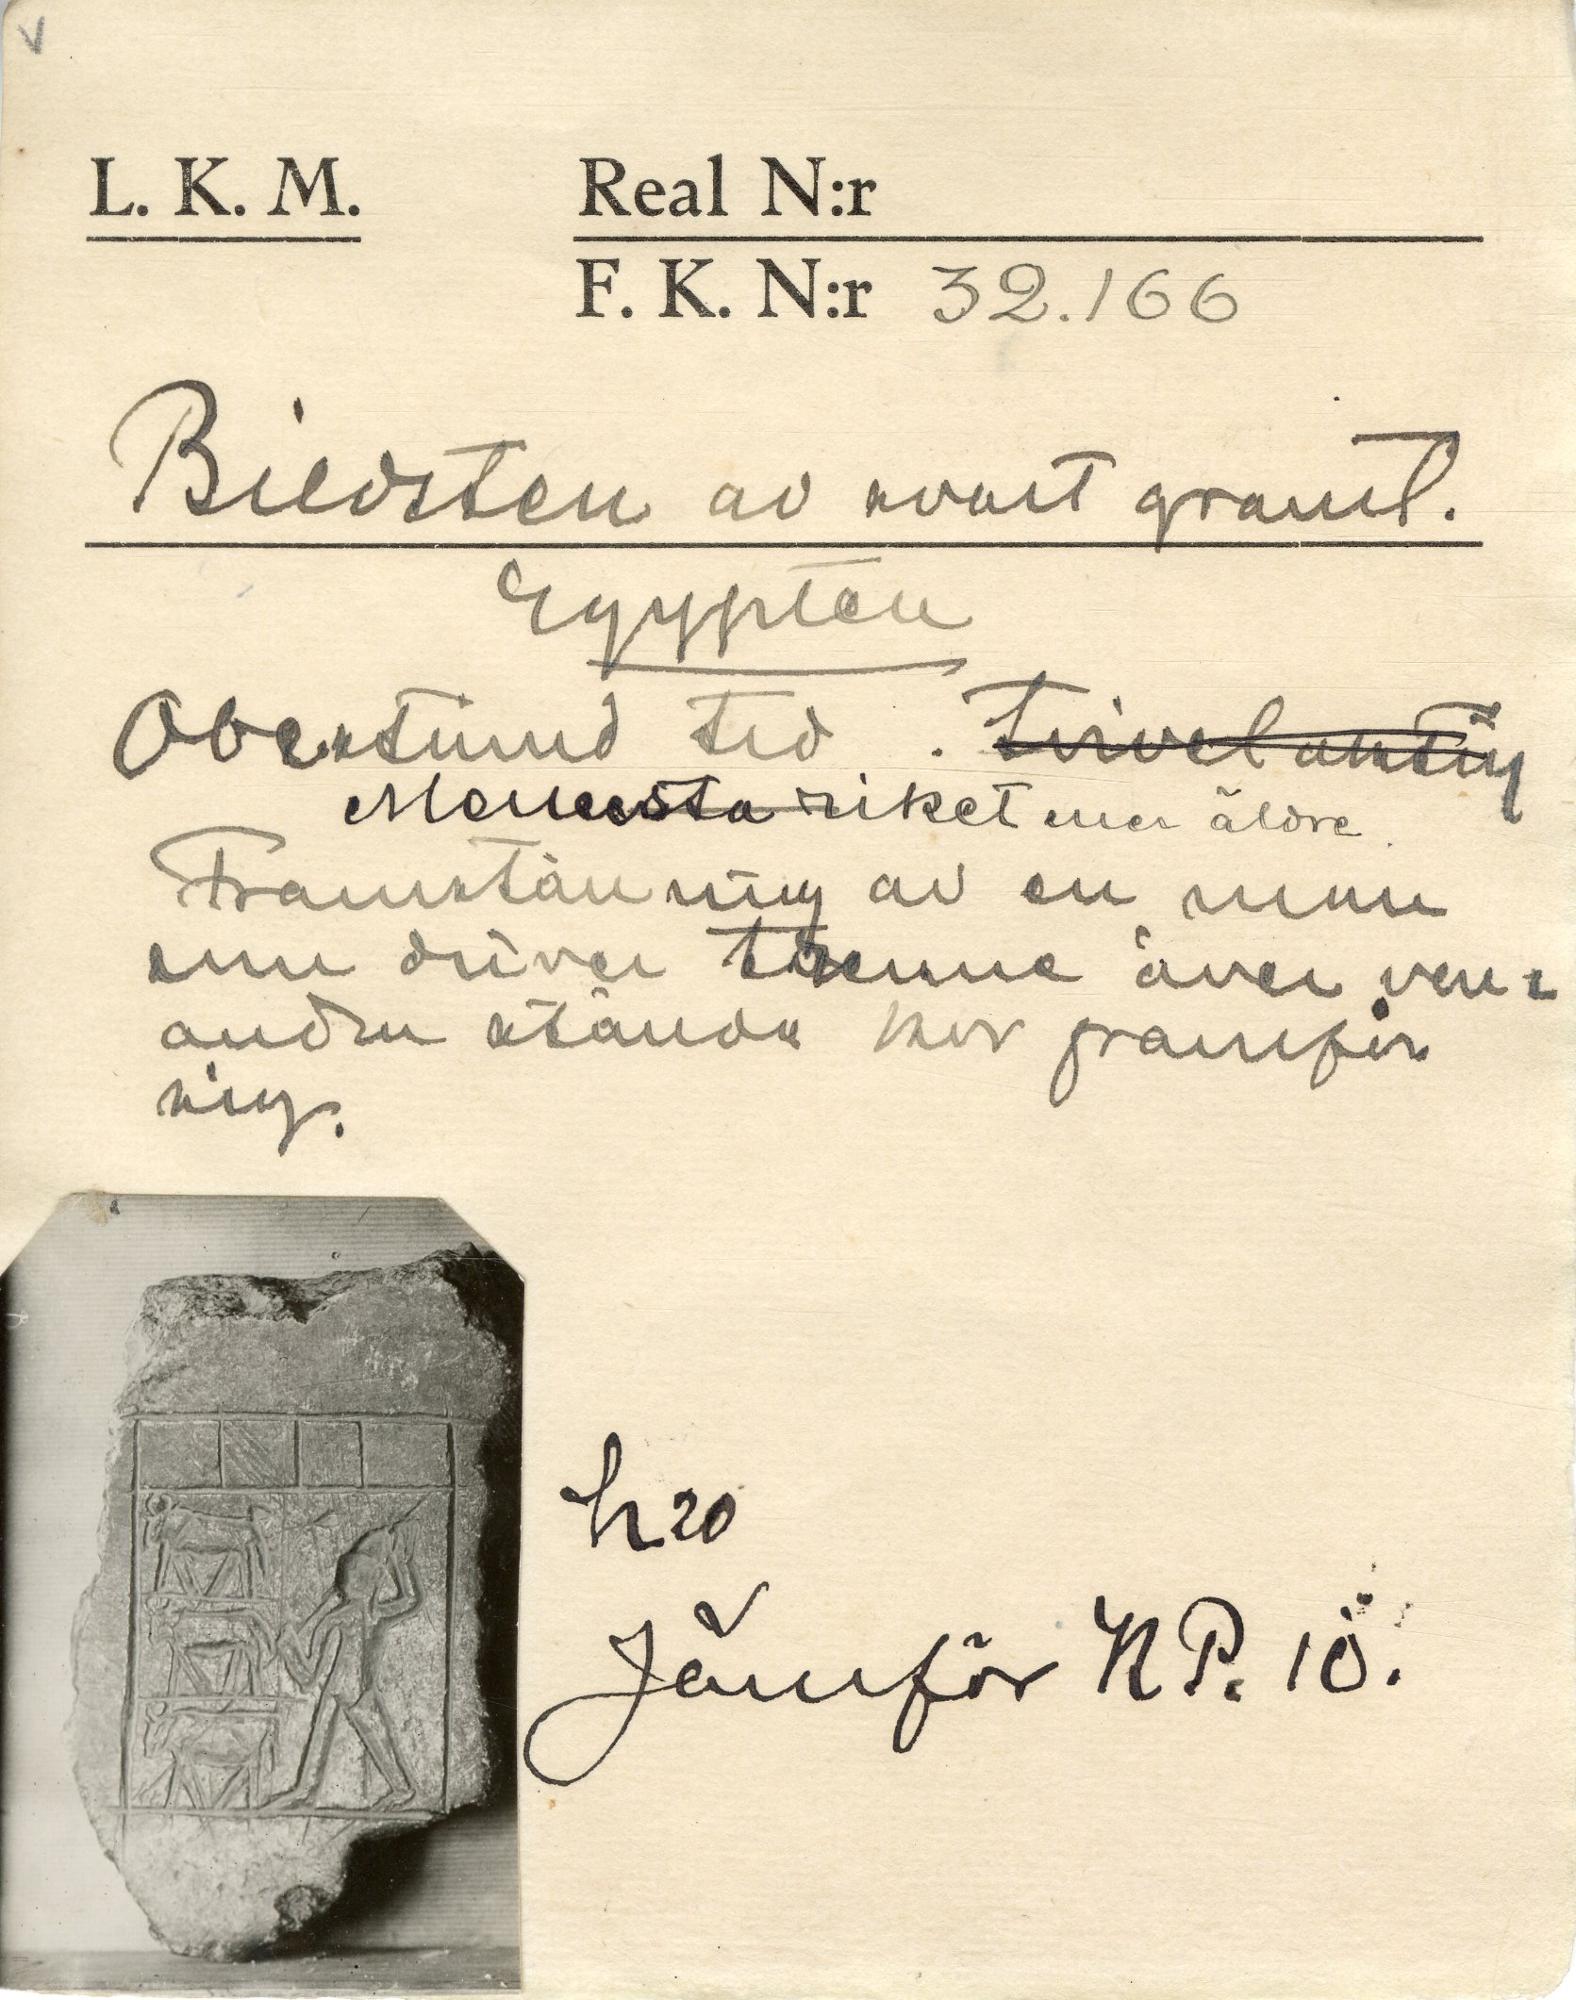 V
L. K. M. Real N:r
F. K. N:r 32.166
Bildsten av svart granit.
Egypten
Obestämd tid . Tvivelaktig
riket eller äldre
Framställning av en man
som driver trenne över var-
andra stående kor framför
sig.
h 20
Jämför N P. 10.